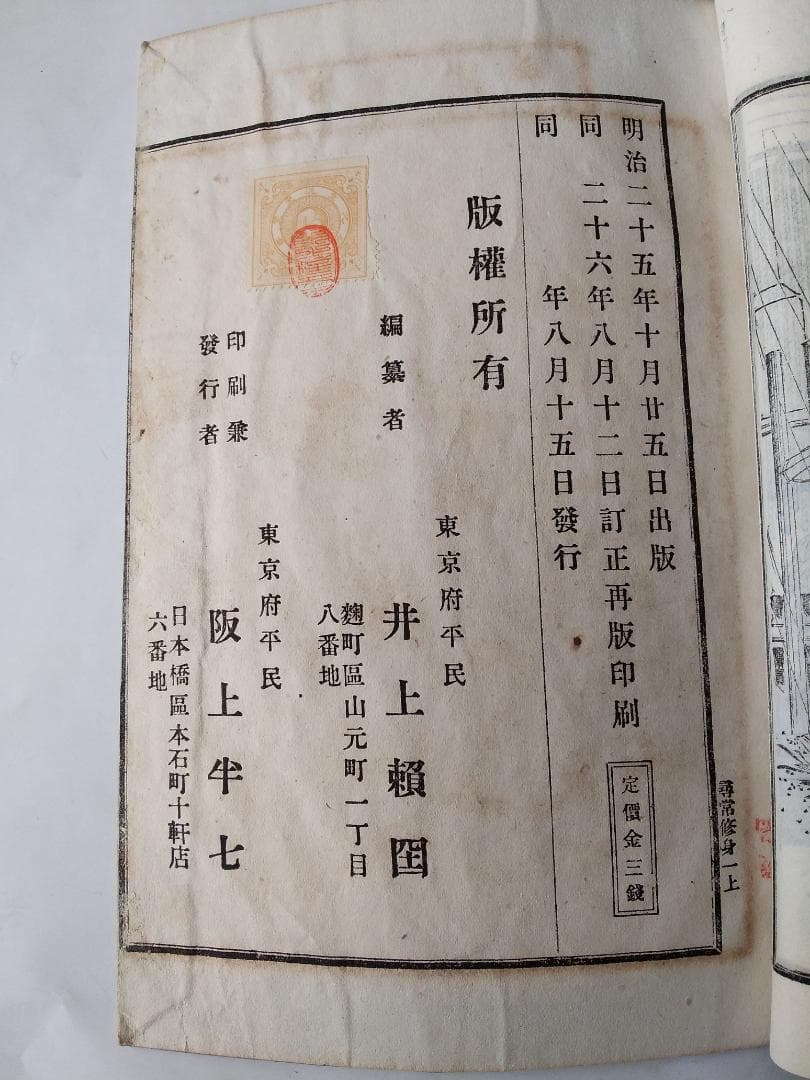 明治二十五年十月廿五日出版
同 二十六年八月十二日訂正再版印刷
同 年八月十五日發行
定價金三錢
版權所有
編纂者
東京府平民
井上賴囶
麴町區山元町一丁目
八番地
印刷兼
發行者
東京府平民
阪上半七
日本橋區本石町十軒店
六番地
尋常修身一上